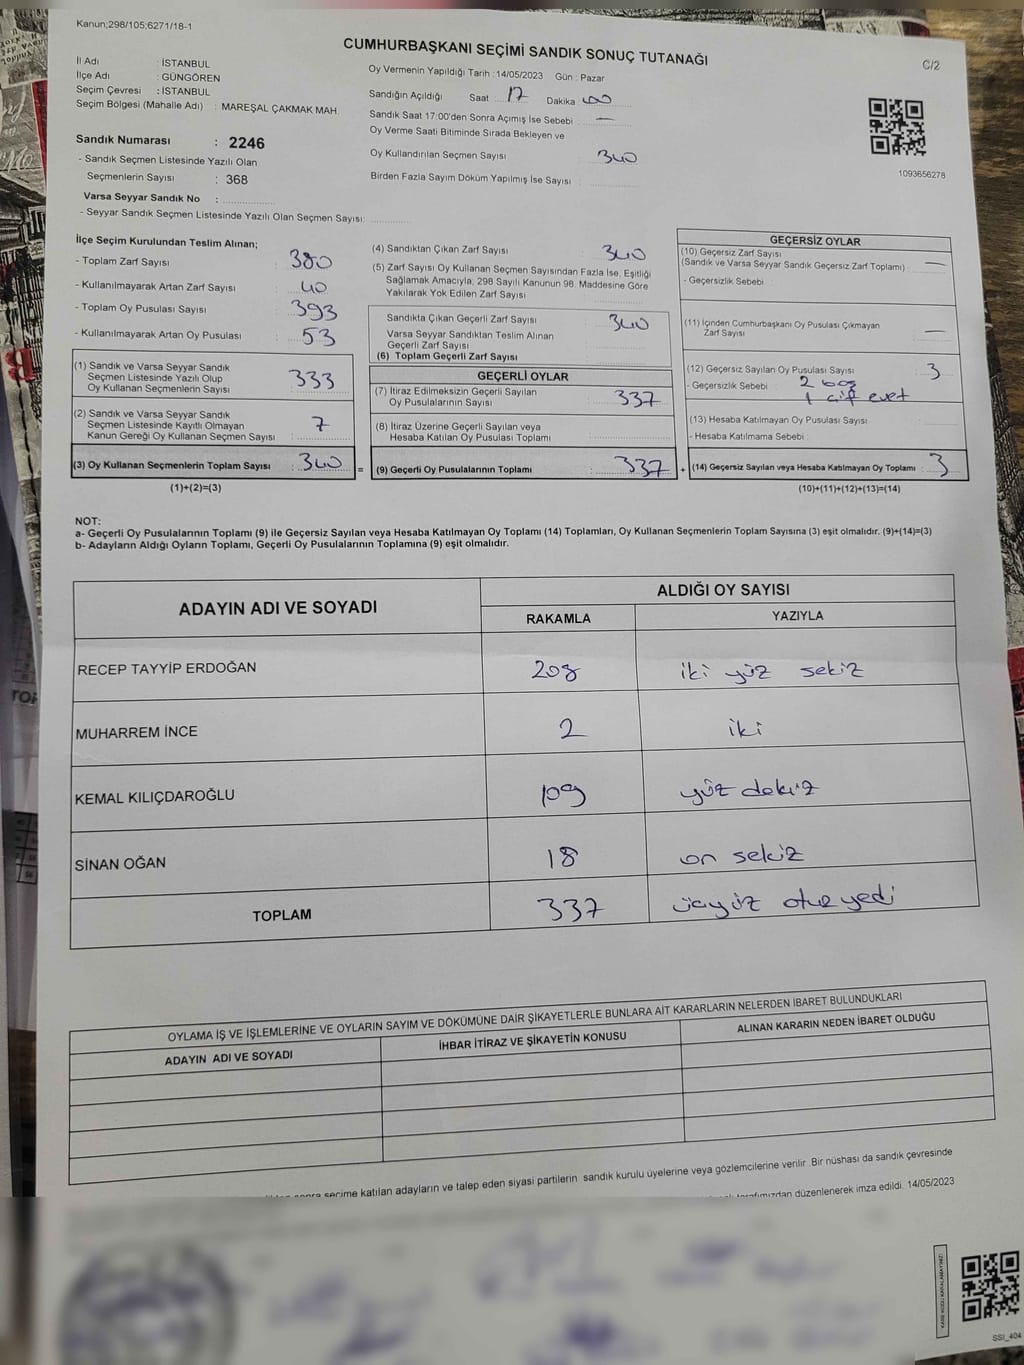 Kanun;298/105;6271/18-1
CUMHURBAŞKANI SEÇİMİ SANDIK SONUÇ TUTANAĞI
C/2
İl Adı : İSTANBUL
İlçe Adı : GÜNGÖREN
Seçim Çevresi : İSTANBUL
Seçim Bölgesi (Mahalle Adı) : MAREŞAL ÇAKMAK MAH.
Sandık Numarası : 2246
- Sandık Seçmen Listesinde Yazılı Olan
Seçmenlerin Sayısı : 368
Varsa Seyyar Sandık No :
- Seyyar Sandık Seçmen Listesinde Yazılı Olan Seçmen Sayısı:
Oy Vermenin Yapıldığı Tarih :14/05/2023 Gün : Pazar
Sandığın Açıldığı Saat : 17 Dakika : 00
Sandık Saat 17:00'den Sonra Açımış İse Sebebi : —
Oy Verme Saati Bitiminde Sırada Bekleyen ve
Oy Kullandırılan Seçmen Sayısı 340
Birden Fazla Sayım Döküm Yapılmış İse Sayısı :
1093656278
İlçe Seçim Kurulundan Teslim Alınan;
- Toplam Zarf Sayısı : 380
- Kullanılmayarak Artan Zarf Sayısı : 40
- Toplam Oy Pusulası Sayısı : 393
- Kullanılmayarak Artan Oy Pusulası : 53
(1) Sandık ve Varsa Seyyar Sandık
Seçmen Listesinde Yazılı Olup
Oy Kullanan Seçmenlerin Sayısı : 333
(2) Sandık ve Varsa Seyyar Sandık
Seçmen Listesinde Kayıtlı Olmayan
Kanun Gereği Oy Kullanan Seçmen Sayısı : 7
(3) Oy Kullanan Seçmenlerin Toplam Sayısı : 340 =
(1)+(2)=(3)
(4) Sandıktan Çıkan Zarf Sayısı : 340
(5) Zarf Sayısı Oy Kullanan Seçmen Sayısından Fazla İse, Eşitliği
Sağlamak Amacıyla; 298 Sayılı Kanunun 98. Maddesine Göre
Yakılarak Yok Edilen Zarf Sayısı :
Sandıkta Çıkan Geçerli Zarf Sayısı : 340
Varsa Seyyar Sandıktan Teslim Alınan
Geçerli Zarf Sayısı :
(6) Toplam Geçerli Zarf Sayısı
GEÇERLİ OYLAR
(7) İtiraz Edilmeksizin Geçerli Sayılan
Oy Pusulalarının Sayısı : 337
(8) İtiraz Üzerine Geçerli Sayılan veya
Hesaba Katılan Oy Pusulası Toplamı :
(9) Geçerli Oy Pusulalarının Toplamı : 337 +
GEÇERSİZ OYLAR
(10) Geçersiz Zarf Sayısı
(Sandık ve Varsa Seyyar Sandık Geçersiz Zarf Toplamı) : —
- Geçersizlik Sebebi :
(11) İçinden Cumhurbaşkanı Oy Pusulası Çıkmayan
Zarf Sayısı : —
(12) Geçersiz Sayılan Oy Pusulası Sayısı : 3
- Geçersizlik Sebebi : 2 boş
1 çif evet
(13) Hesaba Katılmayan Oy Pusulası Sayısı :
- Hesaba Katılmama Sebebi :
(14) Geçersiz Sayılan veya Hesaba Katılmayan Oy Toplamı : 3
(10)+(11)+(12)+(13)=(14)
NOT:
a- Geçerli Oy Pusulalarının Toplamı (9) ile Geçersiz Sayılan veya Hesaba Katılmayan Oy Toplamı (14) Toplamları, Oy Kullanan Seçmenlerin Toplam Sayısına (3) eşit olmalıdır. (9)+(14)=(3)
b- Adayların Aldığı Oyların Toplamı, Geçerli Oy Pusulalarının Toplamına (9) eşit olmalıdır.
ADAYIN ADI VE SOYADI
ALDIĞI OY SAYISI
RAKAMLA YAZIYLA
RECEP TAYYİP ERDOĞAN 208 iki yüz sekiz
MUHARREM İNCE 2 iki
KEMAL KILIÇDAROĞLU 109 yüz dokuz
SİNAN OĞAN 18 on sekiz
TOPLAM 337 üçyüz otuz yedi
OYLAMA İŞ VE İŞLEMLERİNE VE OYLARIN SAYIM VE DÖKÜMÜNE DAİR ŞİKAYETLERLE BUNLARA AİT KARARLARIN NELERDEN İBARET BULUNDUKLARI
ADAYIN ADI VE SOYADI İHBAR İTİRAZ VE ŞİKAYETİN KONUSU ALINAN KARARIN NEDEN İBARET OLDUĞU
sonra seçime katılan adayların ve talep eden siyasi partilerin sandık kurulu üyelerine veya gözlemcilerine verilir. Bir nüshası da sandık çevresinde
tarafımızdan düzenlenerek imza edildi. 14/05/2023
SSI_404